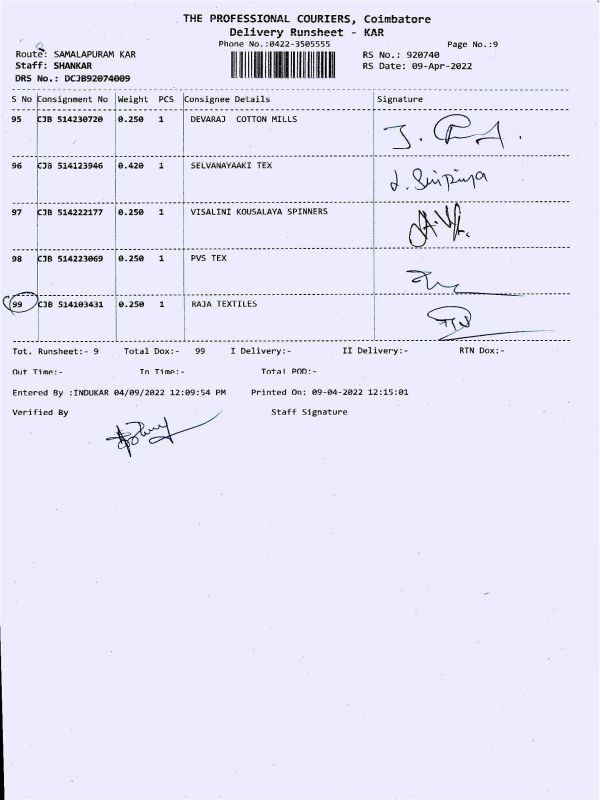 THE PROFESSIONAL COURIERS, Coimbatore
Delivery Runsheet - KAR
Phone No.:0422-3505555 Page No.:9
Route: SAMALAPURAM KAR RS No.: 920740
Staff: SHANKAR RS Date: 09-Apr-2022
DRS No.: DCJB92074009
S No Consignment No Weight PCS Consignee Details Signature
95 CJB 514230720 0.250 1 DEVARAJ COTTON MILLS
96 CJB 514123946 0.420 1 SELVANAYAAKI TEX
97 CJB 514222177 0.250 1 VISALINI KOUSALAYA SPINNERS
98 CJB 514223069 0.250 1 PVS TEX
99 CJB 514103431 0.250 1 RAJA TEXTILES
Tot. Runsheet:- 9 Total Dox:- 99 I Delivery:- II Delivery:- RTN Dox:-
Out Time:- In Time:- Total POD:-
Entered By :INDUKAR 04/09/2022 12:09:54 PM Printed On: 09-04-2022 12:15:01
Verified By Staff Signature